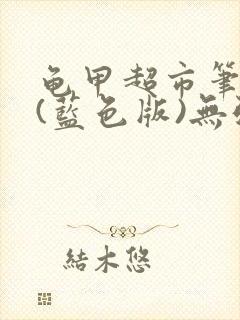 龟甲超市筆
(藍色版)無
結木悠